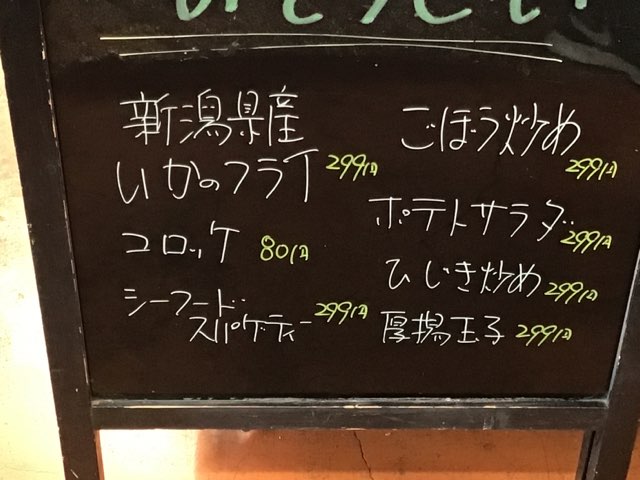 新潟県産
いかのフライ 299円
コロッケ 80円
シーフード
スパゲティー 299円
ごぼう炒め
299円
ポテトサラダ 299円
ひじき炒め 299円
厚揚玉子 299円